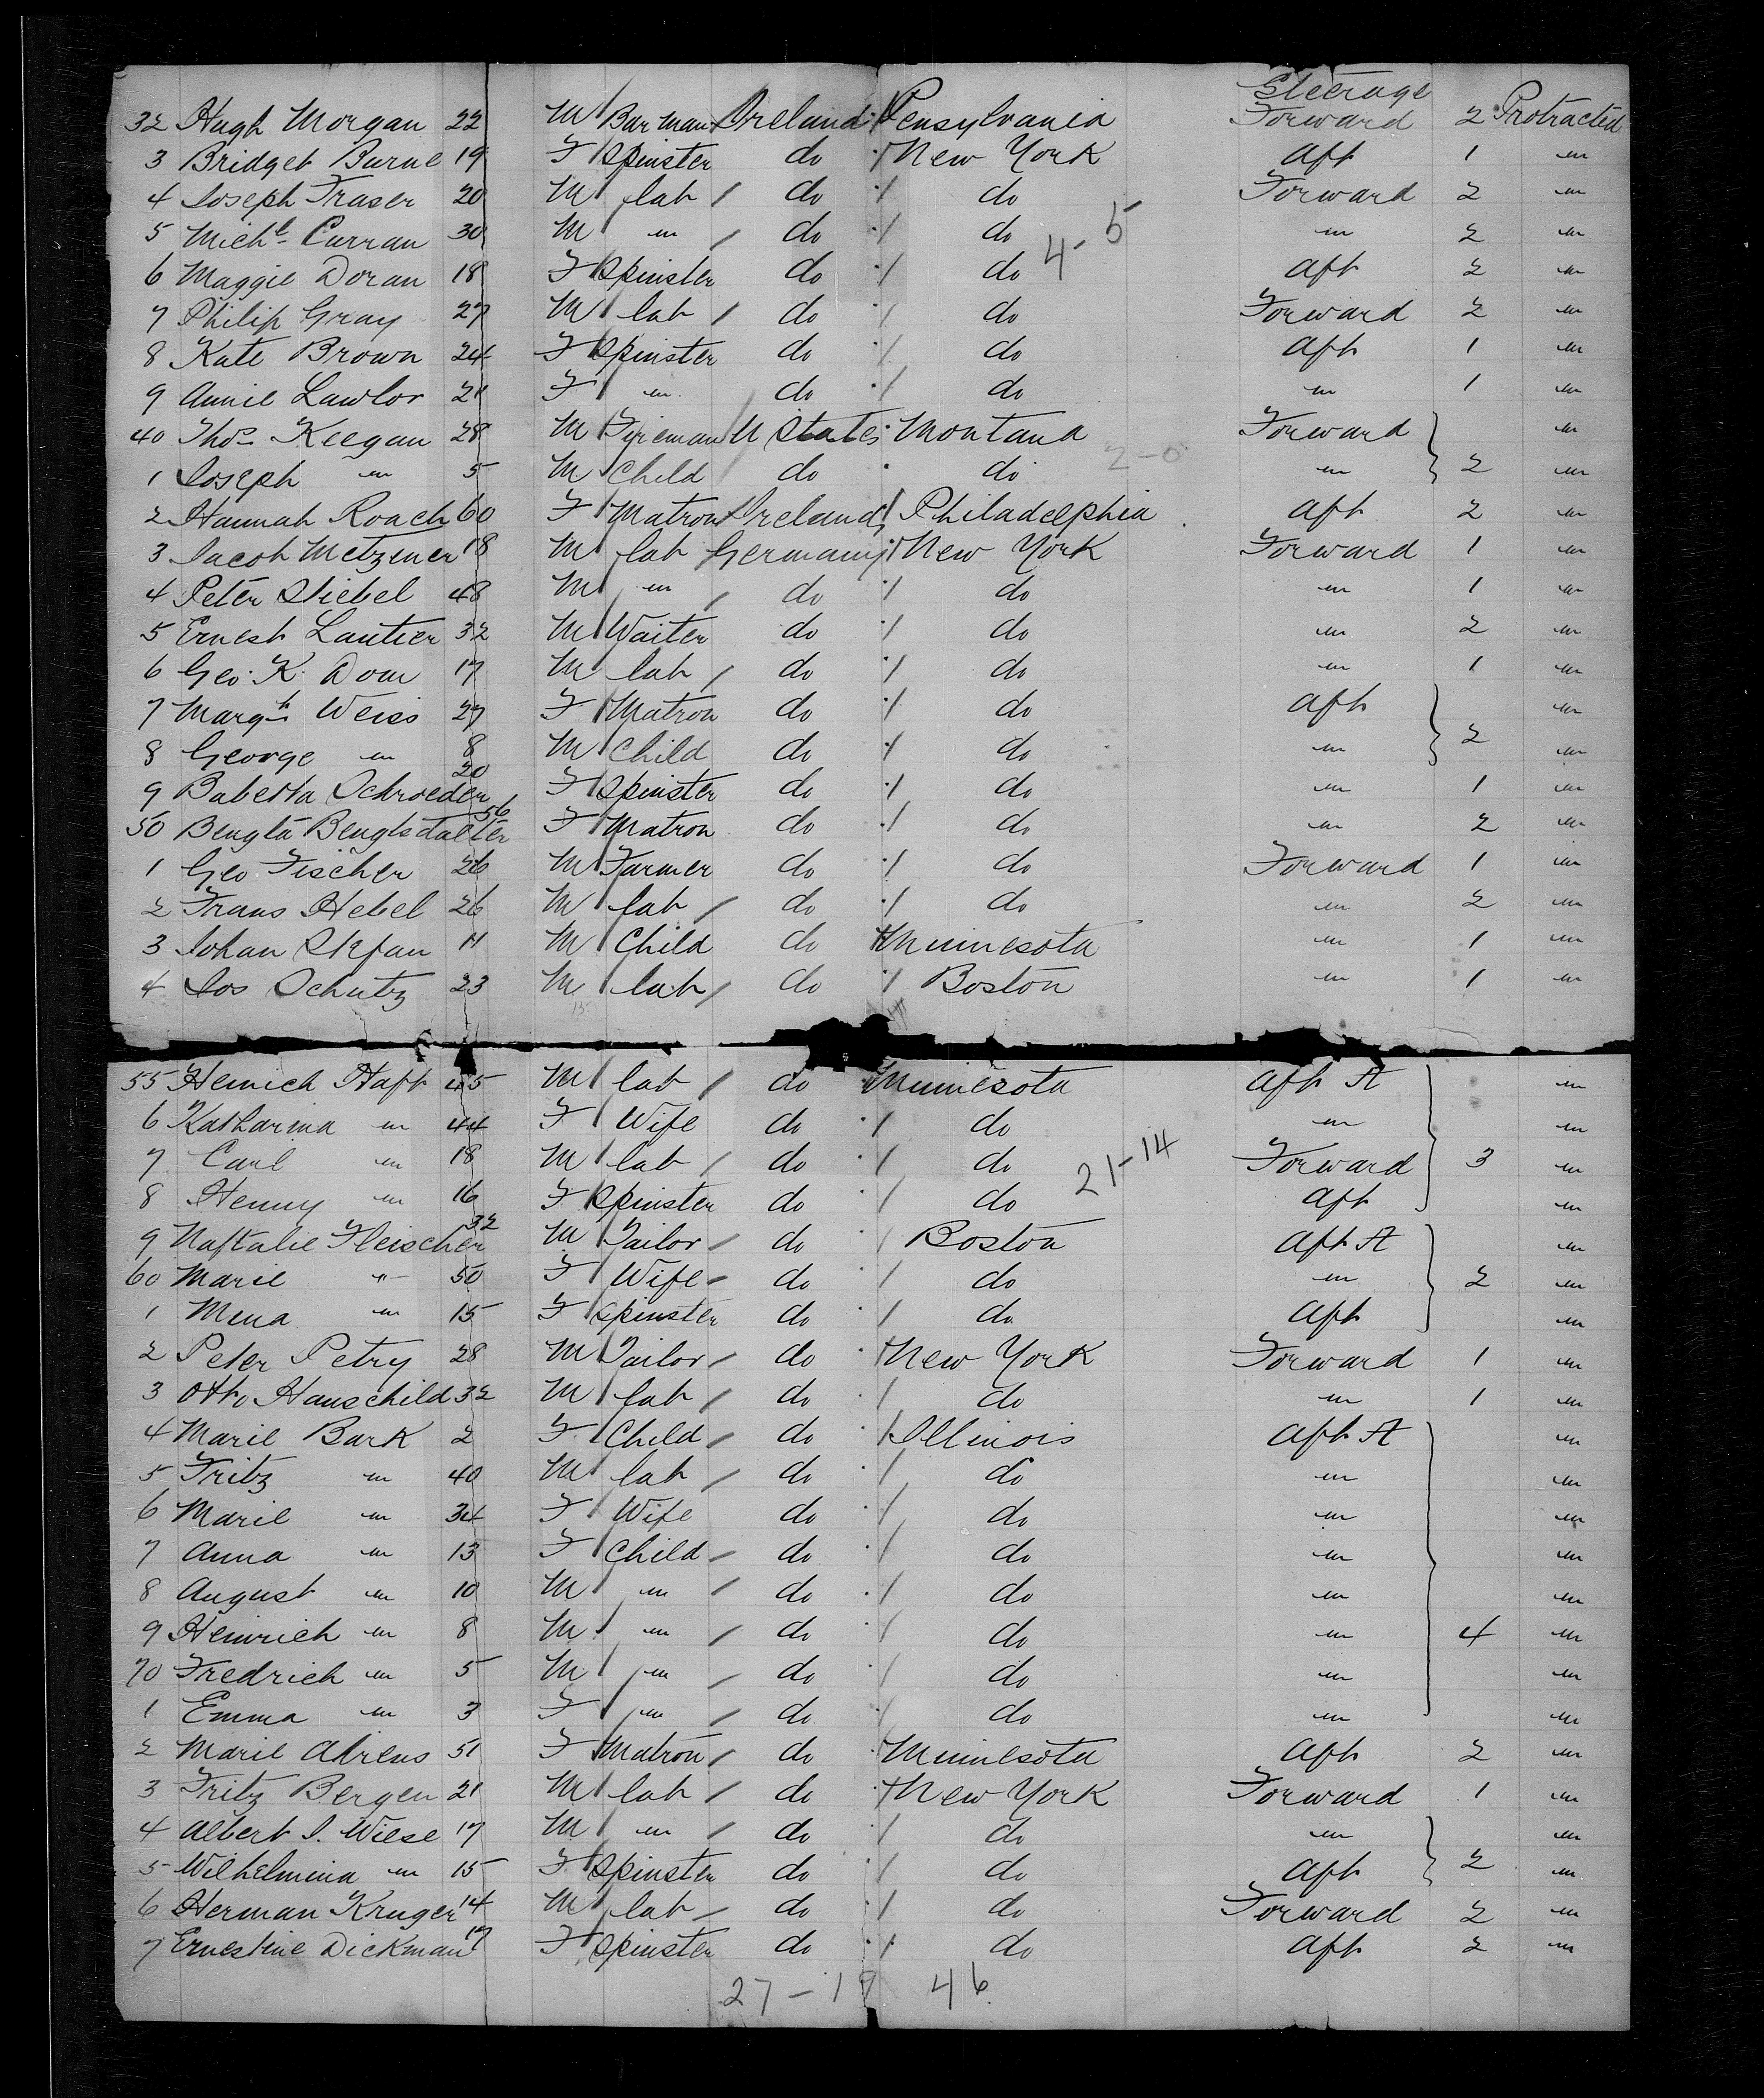 Steerage
32 Hugh Morgan 22 M Bar Man Ireland Pensylvania Forward 2 Protracted
3 Bridget Burne 19 F Spinster do New York Aft 1 "
4 Joseph Fraser 20 M lab do do Forward 2 "
5 Michl Curran 30 M " do do " 2 "
4-5
6 Maggie Doran 18 F Spinster do do Aft 2 "
7 Philip Gray 27 M lab do do Forward 2 "
8 Kate Brown 24 F Spinster do do Aft 1 "
9 Annie Lawlor 21 F " do do " 1 "
40 Thos Keegan 28 M Fireman U States Montana Forward "
2-0
1 Joseph " 5 M Child do do " 2 "
2 Hannah Roach 60 F Matron Ireland Philadelphia Aft 2 "
3 Jacob Metzmer 18 M lab Germany New York Forward 1 "
4 Peter Stiebel 48 M " do do " 1 "
5 Ernest Lautier 32 M Waiter do do " 2 "
6 Geo. K. Dom 17 M lab do do " 1 "
7 Margt Weiss 27 F Matron do do Aft "
8 George " 8 M Child do do " 2 "
9 Babetta Schroeder 20 F Spinster do do " 1 "
50 Bengta Bengtsdatter 56 F Matron do do " 2 "
1 Geo Fischer 26 M Farmer do do Forward 1 "
2 Frans Hebel 26 M lab do do " 2 "
3 Johan Stefan 11 M Child do Minnesota " 1 "
4 Jos Schutz 23 M lab do Boston " 1 "
55 Heinich Haft 45 M lab do Minnesota Aft A "
6 Katharina " 44 F Wife do do " "
7 Carl " 18 M lab do do Forward 3 "
21-14
8 Henny " 16 F Spinster do do Aft "
9 Naftalie Fleischer 32 M Tailor do Boston Aft A "
60 Marie " 50 F Wife do do " 2 "
1 Mena " 15 F Spinster do do Aft "
2 Peter Petry 28 M Tailor do New York Forward 1 "
3 Otto Hauschild 32 M lab do do " 1 "
4 Marie Bark 2 F Child do Illinois Aft A "
5 Fritz " 40 M lab do do " "
6 Marie " 34 F Wife do do " "
7 Anna " 13 F Child do do " "
8 August " 10 M " do do " "
9 Heinrich " 8 M " do do " 4 "
70 Fredrich " 5 M " do do " "
1 Emma " 3 F " do do " "
2 Marie Ahrens 51 F Matron do Minnesota Aft 2 "
3 Fritz Bergen 21 M lab do New York Forward 1 "
4 Albert J. Wiese 17 M " do do " "
5 Wilhelmina " 15 F Spinster do do Aft 2 "
6 Herman Kruger 14 M lab do do Forward 2 "
7 Ernestine Dickman 17 F Spinster do do Aft 2 "
27-19 46